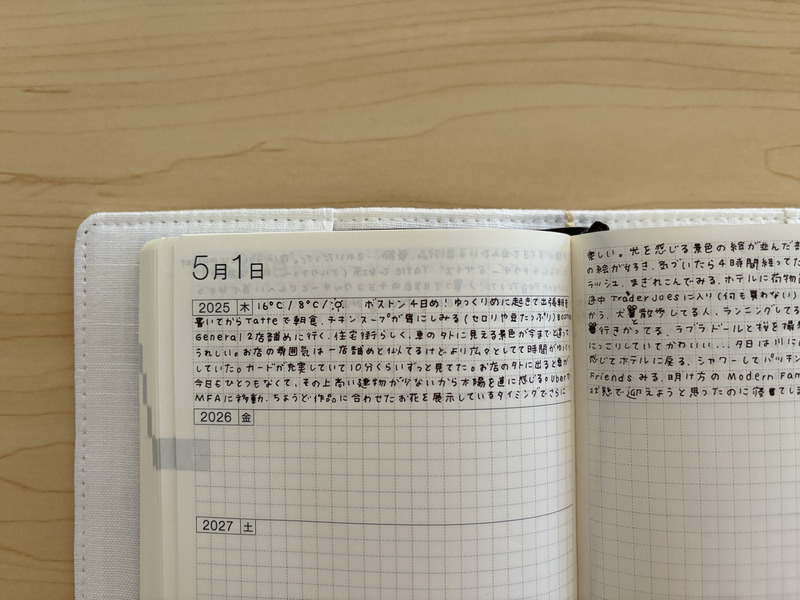 5月1日
2025 木 16℃ / 8℃ / ボストン4日め！ゆっくりめに起きて出張
書いてからTatteで朝食。チキンスープが胃にしみる（セロリや豆たっぷり）
General 2店舗めに行く。住宅街らしく、車の外に見える景色が今までと違って
うれしい。お店の雰囲気は一店舗めと似てるけどより広々としてて時間がゆっくり
していた。カードが充実していて10分くらいずっと見てた。お店の外に出ると
今日もひとつもなくて、その上高い建物が少ないから太陽を直に感じる。Uberで
MFAに移動。ちょうど作品に合わせたお花を展示しているタイミングでさらに
2026 金
2027 土
楽しい。光を感じる景色の絵が並んだ
の絵が好き。気づいたら4時間経ってた
ラッシュ。まぎれこんでみる。ホテルに荷物
途中 Trader Joesに入り（何も買わない）
かう。犬 散歩してる人、ランニングしてる
行きかってる。ラブラドールと桜を撮
にっこりしていてかわいい... 夕日は川に
感じてホテルに戻る。シャワーしてパッキン
Friends みる。明け方の Modern Fam
状態で迎えようと思ったのに寝 てし